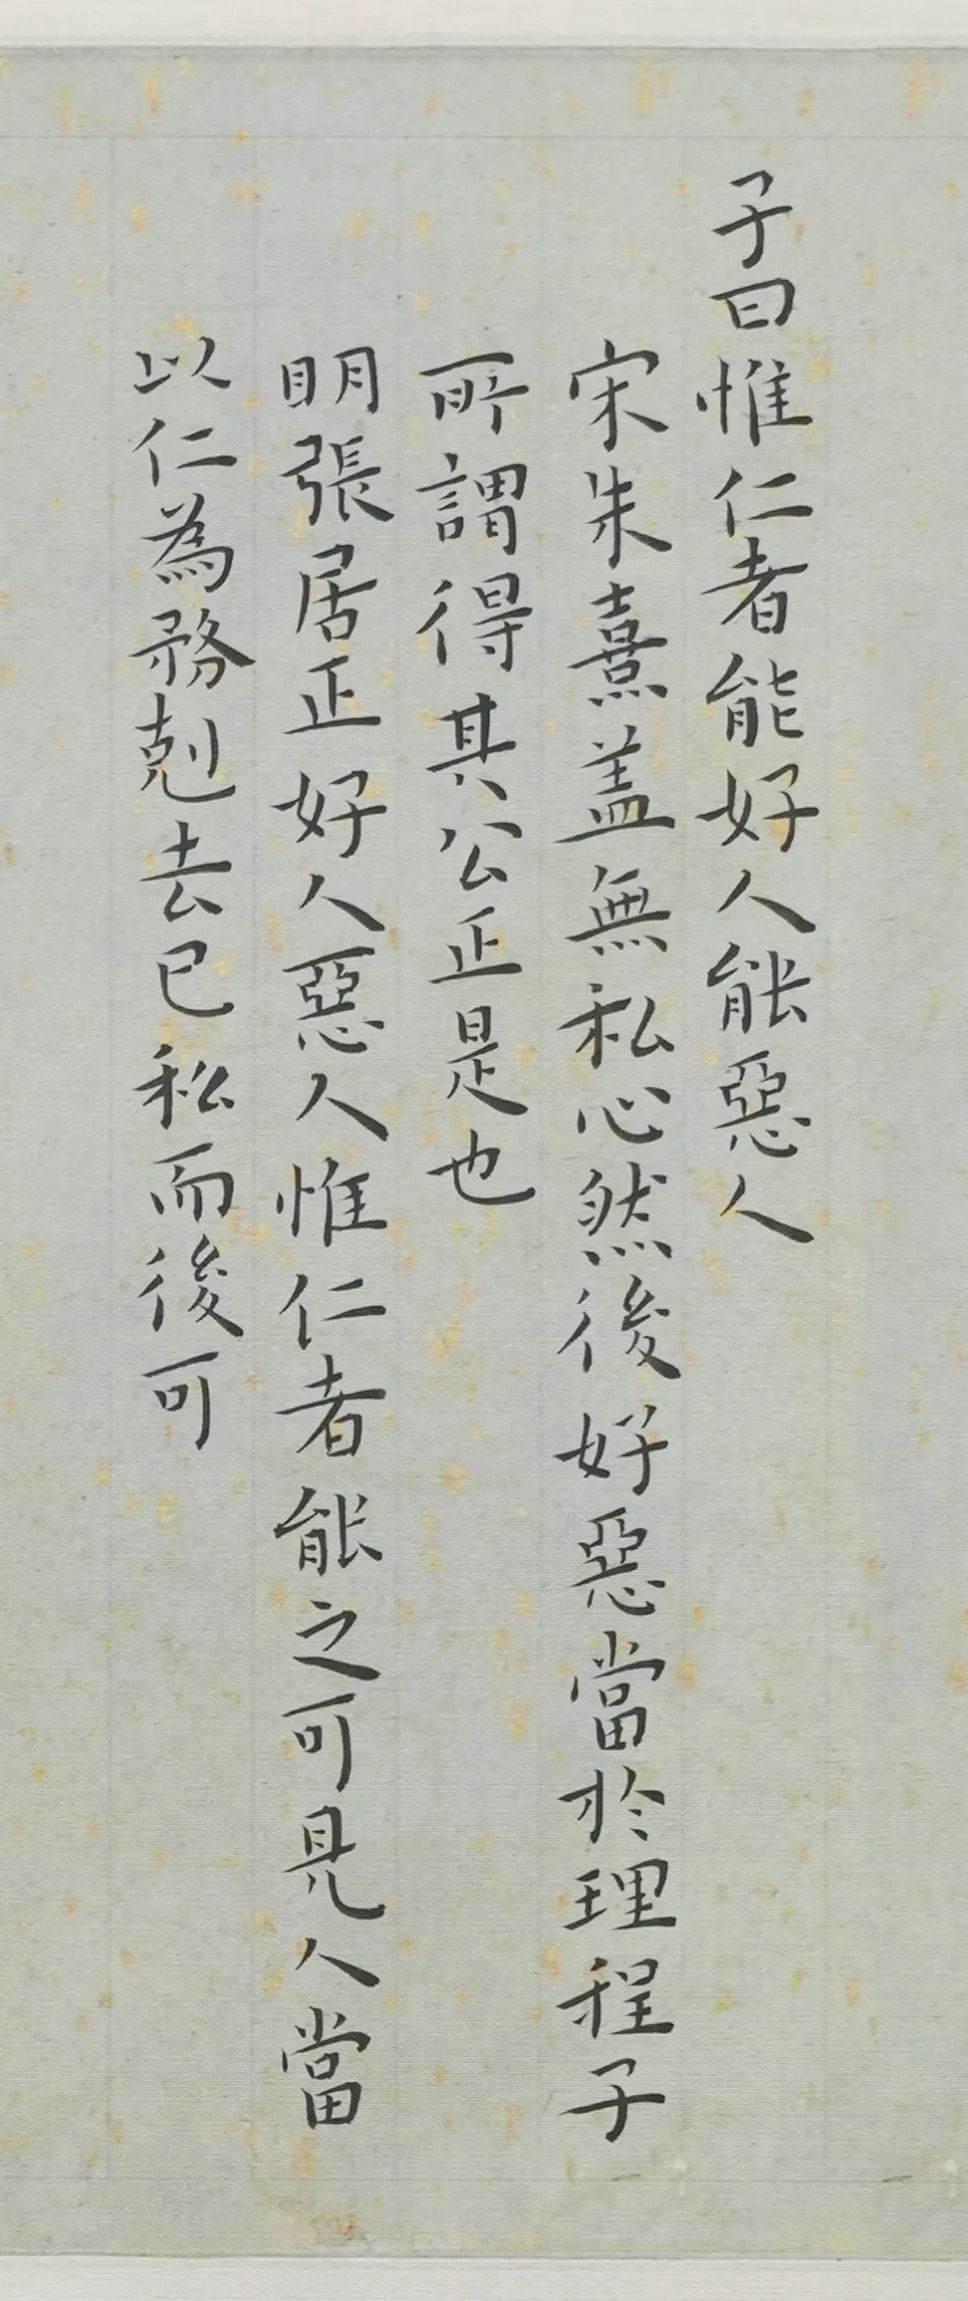 子曰惟仁者能好人能惡人
宋朱熹盖無私心然後好惡當於理程子
所謂得其公正是也
明張居正好人惡人惟仁者能之可見人當
以仁為務剋去己私而後可